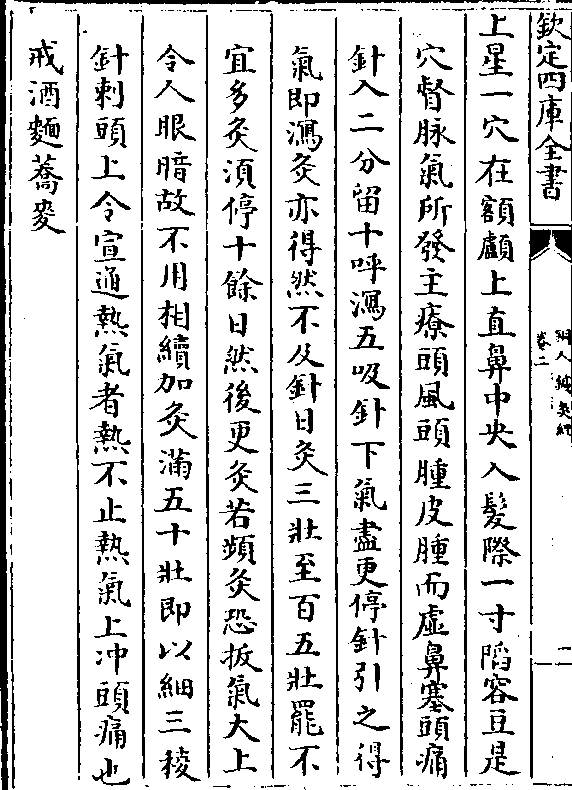 欽定四庫全書
銅人鍼灸經
卷二
二
上星一穴在額顱上直鼻中央入髮際一寸陷容豆是
穴督脉氣所發主療頭風頭腫皮腫而虛鼻塞頭痛
針入二分留十呼瀉五吸針下氣盡更停針引之得
氣即瀉灸亦得然不及針日灸三壯至百五壯罷不
宜多灸須停十餘日然後更灸若頻灸恐拔氣大上
令人眼暗故不用相續加灸滿五十壯即以細三稜
針刺頭上令宣通熱氣者熱不止熱氣上冲頭痛也
戒酒麵蕎麥